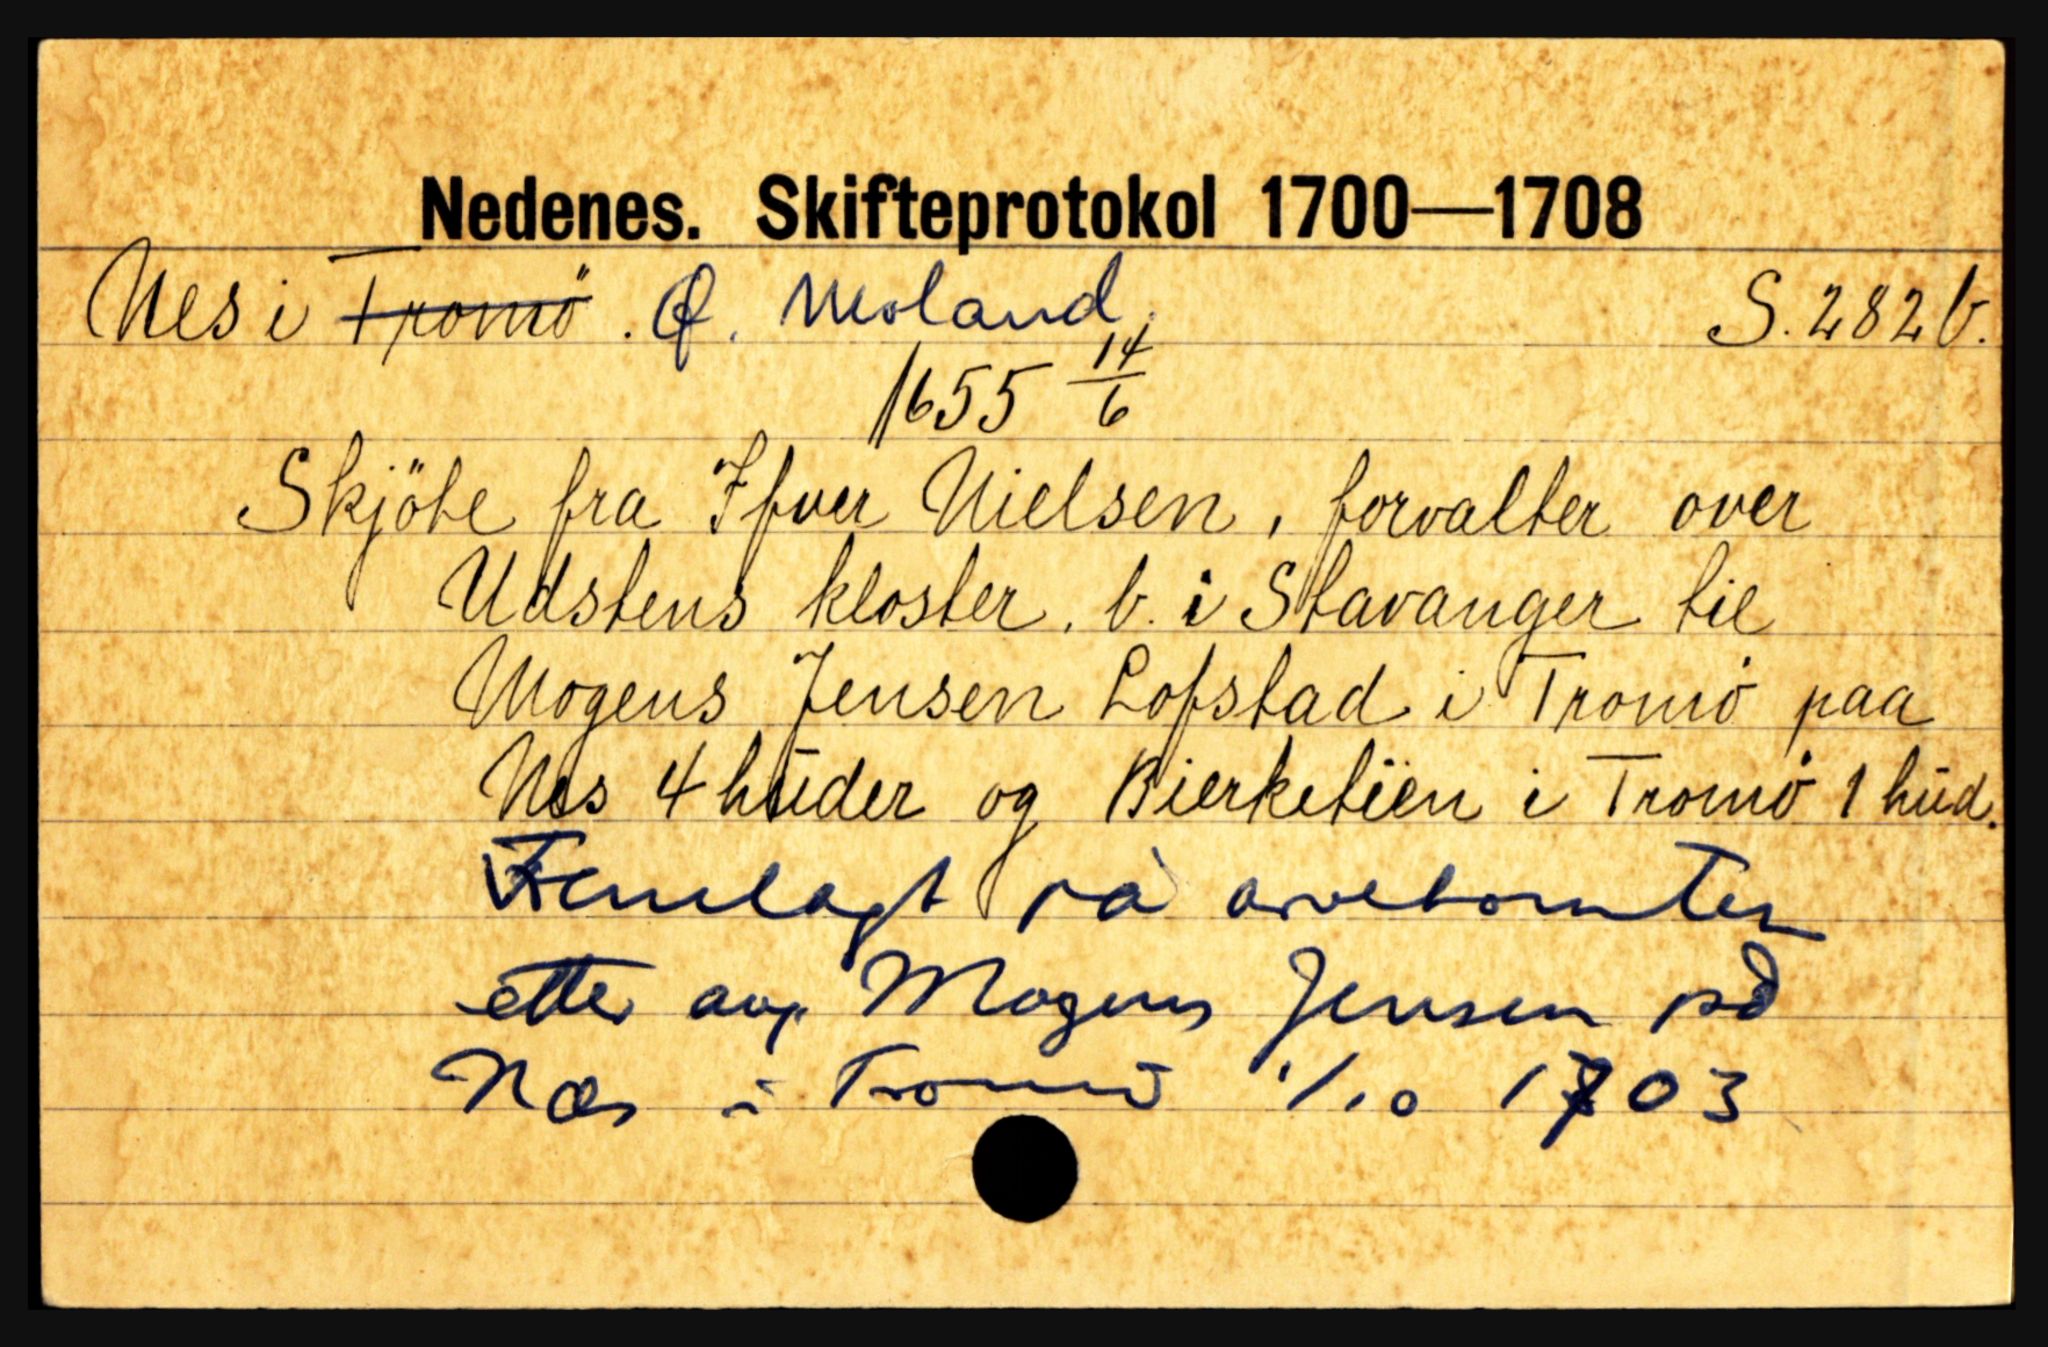 Nedenes. Skifteprotokol 1700—1708
Nes i Tromö. Ø. Moland. S. 282 b.
1655 14/6
Skjöte fra Ifver Nielsen, forvalter over
Udstens kloster, b. i Stavanger til
Mogens Jensen Lofstad i Tromö paa
Nes 4 huder og Bierketien i Tromö 1 hud.
Fremlagt på arvetomten
etter avg. Mogens Jensen på
Næs i Tromö 1/10 1703